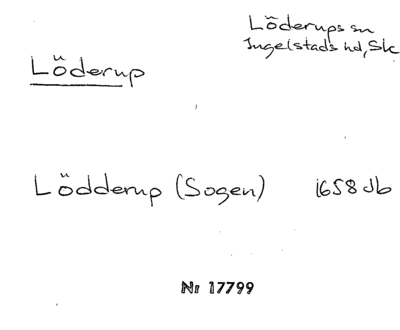 Löderups sn
Ingelstads hd, Sk
Löderup
Lödderup (Sogen) 1658 Jb
Nr 17799